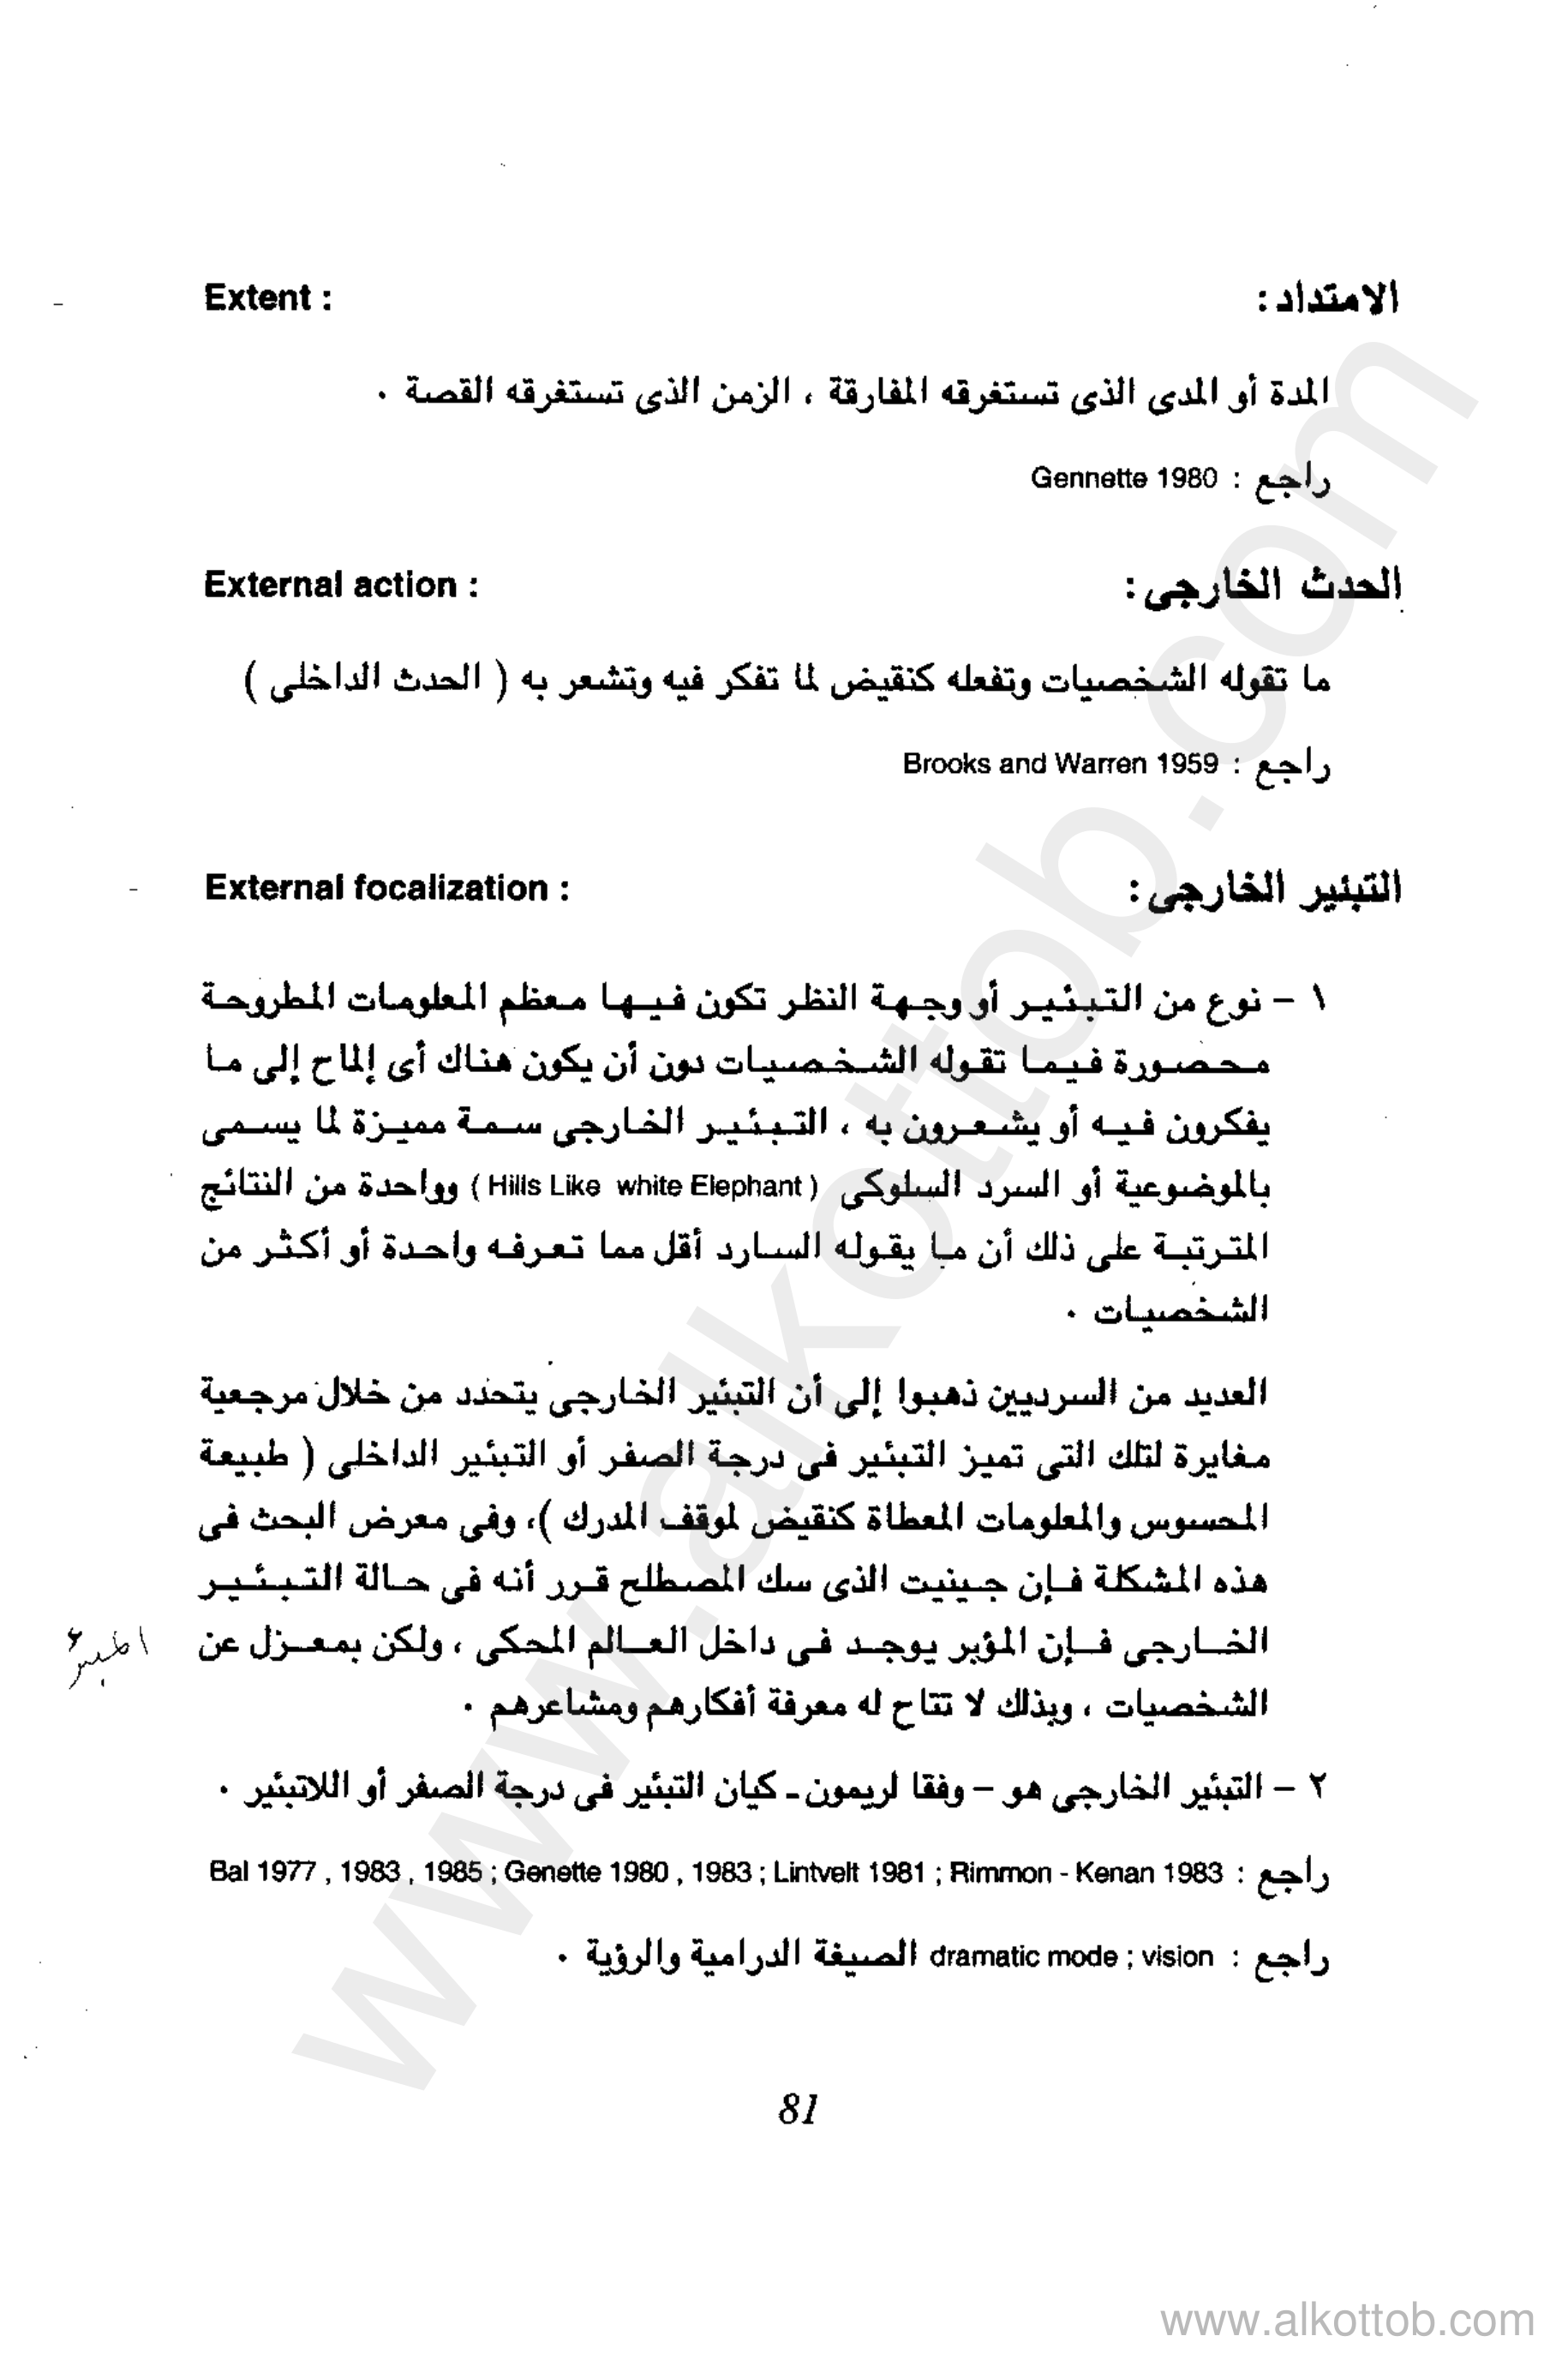 الامتداد :
Extent :
المدة أو المدى الذى تستغرقه المفارقة ، الزمن الذى تستغرقه القصة .
راجع : Gennette 1980
الحدث الخارجى :
External action :
ما تقوله الشخصيات وتفعله كنقيض لما تفكر فيه وتشعر به ( الحدث الداخلى )
راجع : Brooks and Warren 1959
التبئير الخارجى :
External focalization :
١ – نوع من التبئير أو وجهة النظر تكون فيها معظم المعلومات المطروحة
محصورة فيما تقوله الشخصيات دون أن يكون هناك أى إلماح إلى ما
يفكرون فيه أو يشعرون به ، التبئير الخارجى سمة مميزة لما يسمى
بالموضوعية أو السرد السلوكى ( Hills Like white Elephant ) وواحدة من النتائج
المترتبة على ذلك أن ما يقوله السارد أقل مما تعرفه واحدة أو أكثر من
الشخصيات .
العديد من السرديين ذهبوا إلى أن التبئير الخارجى يتحدد من خلال مرجعية
مغايرة لتلك التى تميز التبئير فى درجة الصفر أو التبئير الداخلى ( طبيعة
المحسوس والمعلومات المعطاة كنقيض لموقف المدرك )، وفى معرض البحث فى
هذه المشكلة فإن جينيت الذى سك المصطلح قرر أنه فى حالة التبئير
الخارجى فإن المؤبر يوجد فى داخل العالم المحكى ، ولكن بمعزل عن
الشخصيات ، وبذلك لا تتاح له معرفة أفكارهم ومشاعرهم .
٢ – التبئير الخارجى هو – وفقا لريمون - كيان التبئير فى درجة الصفر أو اللاتبئير .
راجع : Bal 1977 , 1983 , 1985 ; Genette 1980 , 1983 ; Lintvelt 1981 ; Rimmon - Kenan 1983
راجع : dramatic mode ; vision الصيغة الدرامية والرؤية .
81
www.alkottob.com
www.alkottob.com